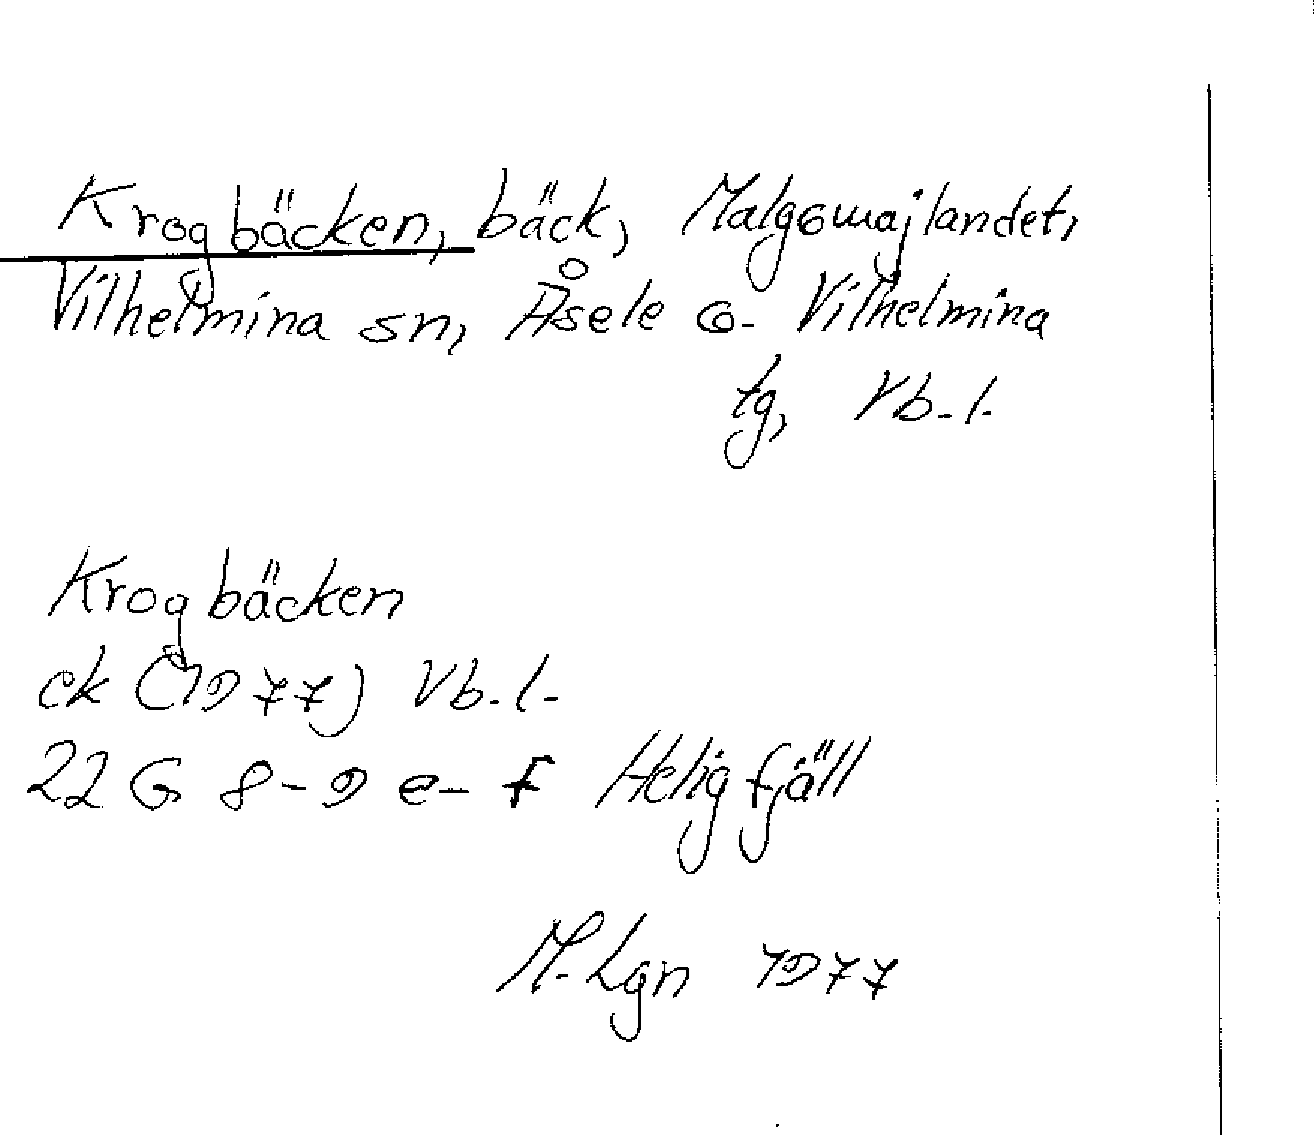 Krogbäcken, bäck, Malgomajlandet,
Vilhelmina sn, Åsele o. Vilhelmina
tg, Vb. l.
Krogbäcken
ek (1977) Vb. l.
22 G 8-9 e-f Heligfjäll
M. Lgn 1977